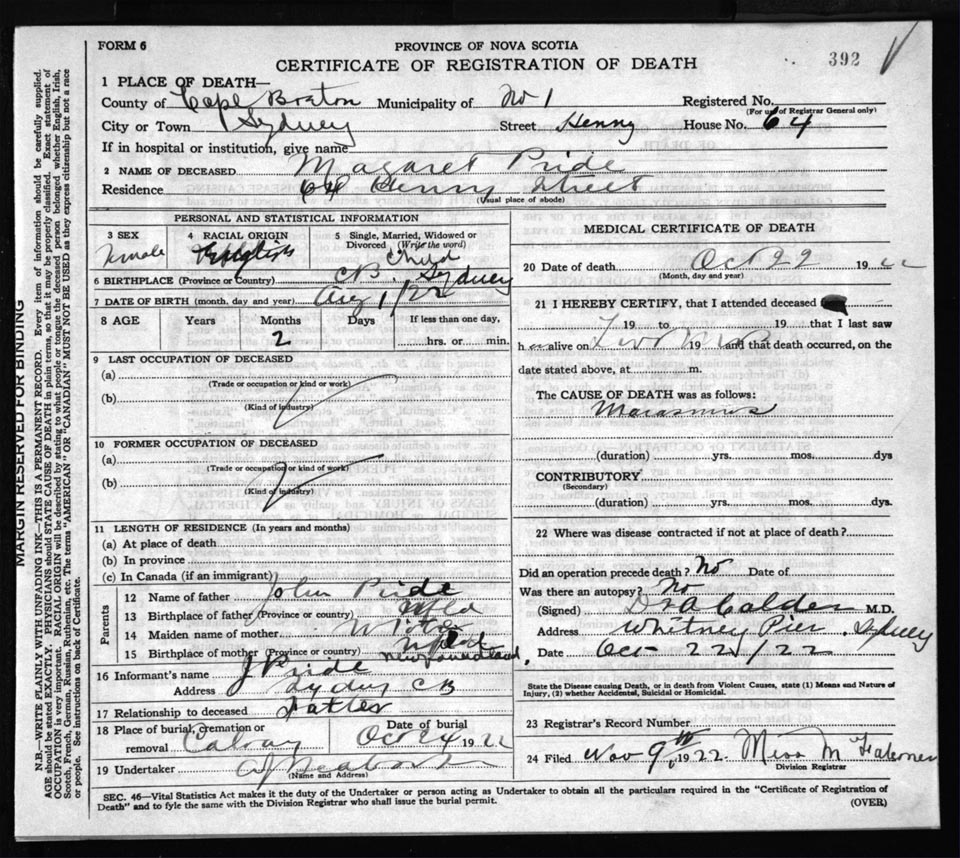 FORM 6
PROVINCE OF NOVA SCOTIA
392
CERTIFICATE OF REGISTRATION OF DEATH
1 PLACE OF DEATH—
County of Cape Breton Municipality of No 1 Registered No.
(For use of Registrar General only)
City or Town Sydney Street Henny House No. 64
If in hospital or institution, give name
2 NAME OF DECEASED Magaret Pride
Residence 64 Henny Street
(Usual place of abode)
PERSONAL AND STATISTICAL INFORMATION
3 SEX Female
4 RACIAL ORIGIN English
5 Single, Married, Widowed or Divorced (Write the word) Child
6 BIRTHPLACE (Province or Country) CB. Sydney
7 DATE OF BIRTH (month, day and year) Aug 1/22
8 AGE Years Months Days If less than one day,
2 hrs. or min.
9 LAST OCCUPATION OF DECEASED
(a)
(Trade or occupation or kind or work)
(b)
(Kind of industry)
10 FORMER OCCUPATION OF DECEASED
(a)
(Trade or occupation or kind of work)
(b)
(Kind of industry)
11 LENGTH OF RESIDENCE (In years and months)
(a) At place of death
(b) In province
(c) In Canada (if an immigrant)
Parents
12 Name of father John Pride
13 Birthplace of father (Province or country) Nfld
14 Maiden name of mother
15 Birthplace of mother (Province or country) Newfoundland,
16 Informant's name J Pride
Address Sydney CB
17 Relationship to deceased Father
18 Place of burial, cremation or removal Calvary
Date of burial Oct 24 1922
19 Undertaker
(Name and Address)
MEDICAL CERTIFICATE OF DEATH
20 Date of death Oct 22 1922
(Month, day and year)
21 I HEREBY CERTIFY, that I attended deceased
19 to 19 that I last saw
h er alive on 19 and that death occurred, on
date stated above, at m.
The CAUSE OF DEATH was as follows:
Marasmus
(duration) yrs. mos. dys
CONTRIBUTORY
(Secondary)
(duration) yrs. mos. dys.
22 Where was disease contracted if not at place of death?
Did an operation precede death? No Date of
Was there an autopsy? No
(Signed) D A Calder M.D.
Address Whitney Pier. Sydney
Date Oct 22/22
State the Disease causing Death, or in death from Violent Causes, state (1) Means and Nature of
Injury, (2) whether Accidental, Suicidal or Homicidal.
23 Registrar's Record Number
24 Filed Nov 9th 1922. Miss M Falconer
Division Registrar
SEC. 46—Vital Statistics Act makes it the duty of the Undertaker or person acting as Undertaker to obtain all the particulars required in the "Certificate of Registration of
Death" and to fyle the same with the Division Registrar who shall issue the burial permit.
(OVER)
MARGIN RESERVED FOR BINDING
N.B.—WRITE PLAINLY WITH UNFADING INK—THIS IS A PERMANENT RECORD. Every item of information should be carefully supplied.
AGE should be stated EXACTLY. PHYSICIANS should STATE CAUSE OF DEATH in plain terms, so that it may be properly classified. Exact statement of
OCCUPATION is very important. RACIAL ORIGIN will be described by stating to what people or tongue the deceased person belonged, whether English, Irish,
Scotch, French, German, Russian, Ruthenian, etc. The terms "AMERICAN" OR "CANADIAN" MUST NOT BE USED as they express citizenship but not a race
or people. See instructions on back of Certificate.